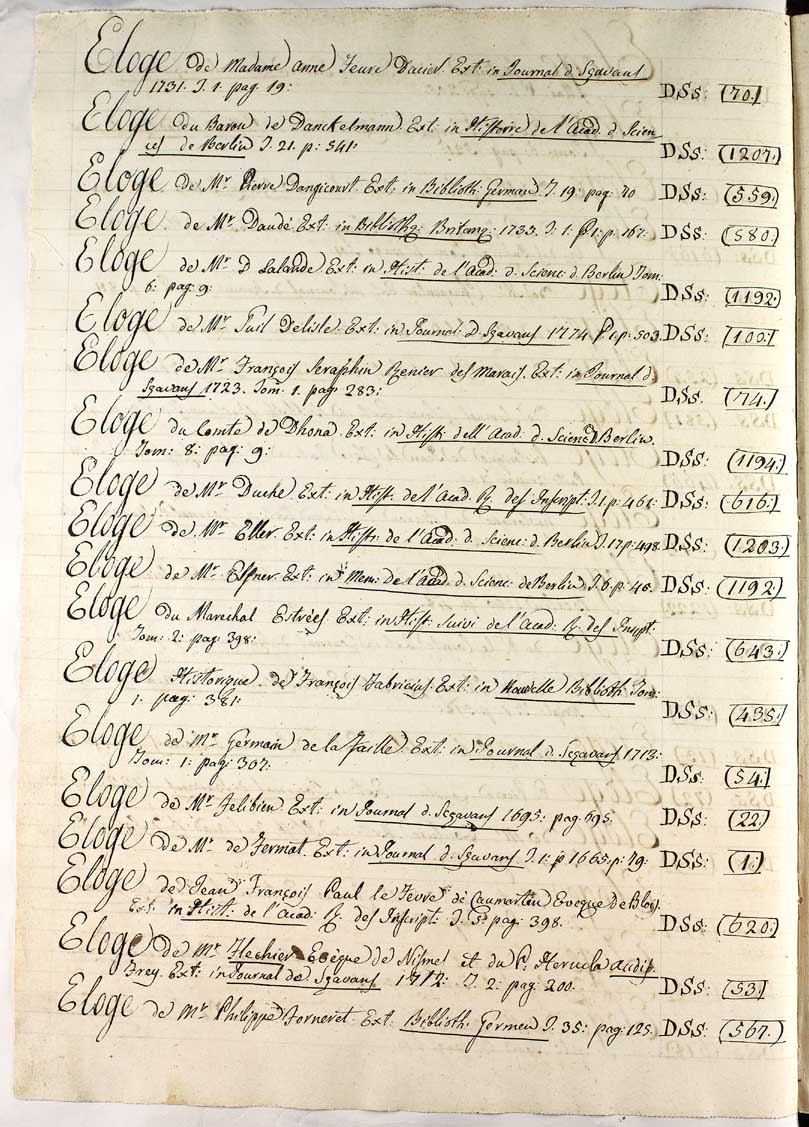 Eloge de Madame Anne Fevre Dacier. Ext: in Journal d. Sçavans
1731. T. 1. pag. 19: DSs: (70.)
Eloge du Baron de Danckelmann. Ext: in Histoire de l'Acad. d. Scien
ces de Berlin T. 21. p: 541: DSs: (1207.)
Eloge de Mr Pierre Dangicourt. Ext: in Biblioth: German: T. 19: pag: 70 DSs: (559.)
Eloge de Mr Daudé Ext: in Bibliothq: Britanq: 1733. T. 1: P 1: p: 167: DSs: (580.)
Eloge de Mr D Lalande Ext: in Hist: de l'Acad: d. Scienc: d. Berlin Tom:
6: pag: 9: DSs: (1192.)
Eloge de Mr Guil Delisle. Ext: in Journal. D. Sçavans 1774. P. 1 p: 503. DSs: (100.)
Eloge de Mr François Seraphin Renier des Marais. Ext: in Journal d
Sçavans 1723. Tom: 1. pag: 283: DSs. (74.)
Eloge du Comte de Dhona. Ext: in Hist: dell' Acad: d. Scienc d Berlin.
Tom: 8: pag: 9: DSs: (1194.)
Eloge de Mr Duche. Ext: in Hist: de l'Acad. R. des Inscript: T. 1: p: 461: DSs: (616.)
Eloge de Mr Eller. Ext: in Histr: de l'Acad: d. Scienc: d. Berlin T. 17 p: 498. DSs: (1203.)
Eloge de Mr Elsner. Ext: in Mem: de l'Acad. d. Scienc: de Berlin T. 6. p: 40. DSs: (1192.)
Eloge du Marechal Estrées Ext: in Hist: suivi de l'Acad: R. des Inscpt:
Tom: 2: pag: 398: DSs: (643.)
Eloge Historique. de François Fabricius. Ext: in Nouvelle Biblioth: Tom:
1. pag: 381: DSs: (435.)
Eloge de Mr Germain de la Faille. Ext: in Journal d. Sçavans 1713:
Tom: 1: pag: 307: DSs: (54.)
Eloge de Mr Felibien Ext: in Journal d. Sçavans 1695: pag: 695. DSs: (22.)
Eloge De Mr de Fermat. Ext: in Journal d. Sçavans T. 1: p 1665. p: 79: DSs: (1.)
Eloge de Jean François Paul le Fevre de Caumartin Eveque de Blois.
Ext: in Hist: de l'Acad: R. des Inscript: T. 5: pag: 398. DSs: (620.)
Eloge de Mr Flechier Evêque de Nismes et du P:
Ext: in Journal de. Sçavans 1712: T. 2: pag: 200. DSs: (53.)
Eloge de Mr Philippe Forneret. Ext: Biblioth: Germen T. 35: pag: 125. DSs: (567.)